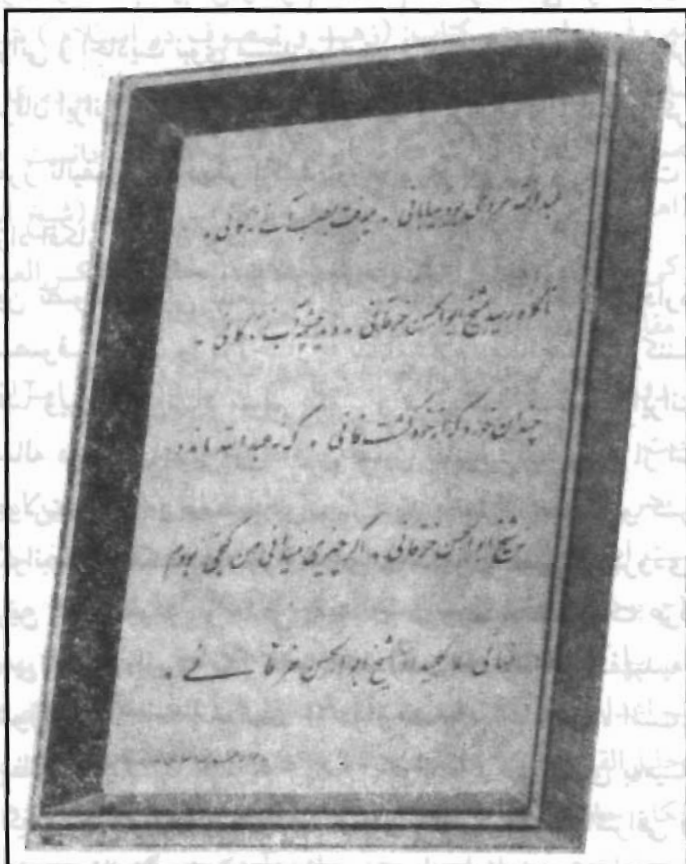 عبدالله مردی بود بیابانی . میرفت بطلب آب زندگانی .
ناگاه رسید بشیخ ابوالحسن خرقانی . دید چشمه آب زندگانی .
چندان خورد که از خود گشت فانی . که نه عبدالله ماند و
نه شیخ ابوالحسن خرقانی . اگر چیزی میدانی من گنجی بودم
نهانی کلید او شیخ ابوالحسن خرقانی .